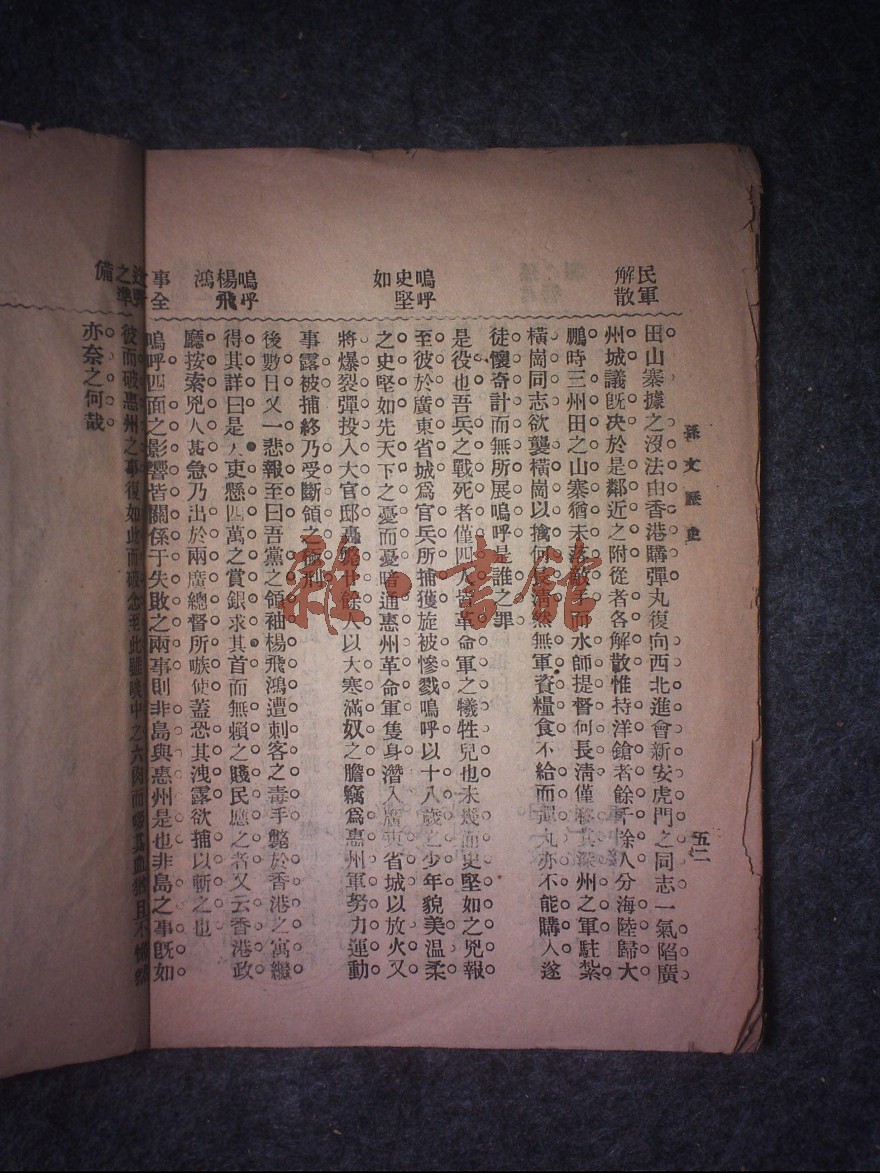 孫文歷史
五二
民軍
解散
田山寨據之沒法由香港購彈丸復向西北進會新安虎門之同志一氣陷廣
州城議既决於是鄰近之附從者各解散惟持洋鎗者餘 人分海陸歸大
鵬時三州田之山寨猶未落敵手而水師提督何長清僅 其深州之軍駐紮
橫崗同志欲襲橫崗以擒何長清然無軍資糧食不給而彈丸亦不能購入遂
徒懷奇計而無所展嗚呼是誰之罪
嗚呼
史堅
如
是役也吾兵之戰死者僅四人皆革命軍之犧牲兒也未幾而史堅如之兇報
至彼於廣東省城爲官兵所捕獲旋被慘戮嗚呼以十八歲之少年貌美温柔
之史堅如先天下之憂而憂暗通惠州革命軍隻身潛入廣東省城以放火又
將爆裂彈投入大官邸轟斃廿餘人以大寒滿奴之膽竊爲惠州軍努力運動
事露被捕終乃受斷頷之極刑
嗚呼
楊飛
鴻
後數日又一悲報至曰吾黨之領袖楊飛鴻遭刺客之毒手斃於香港之寓繼
得其詳曰是人吏懸四萬之賞銀求其首而無賴之賤民應之者又云香港政
廳按索兇人甚急乃出於兩廣總督所嗾使蓋恐其洩露欲捕以斬之也
事全
之準
備
嗚呼四面之影響皆關係于失敗之兩事則非島與惠州是也非島之事既如
彼而破惠州之事復如此而破念至此雖 中之六肉而 其血猶且不
亦奈之何哉
雜·書館